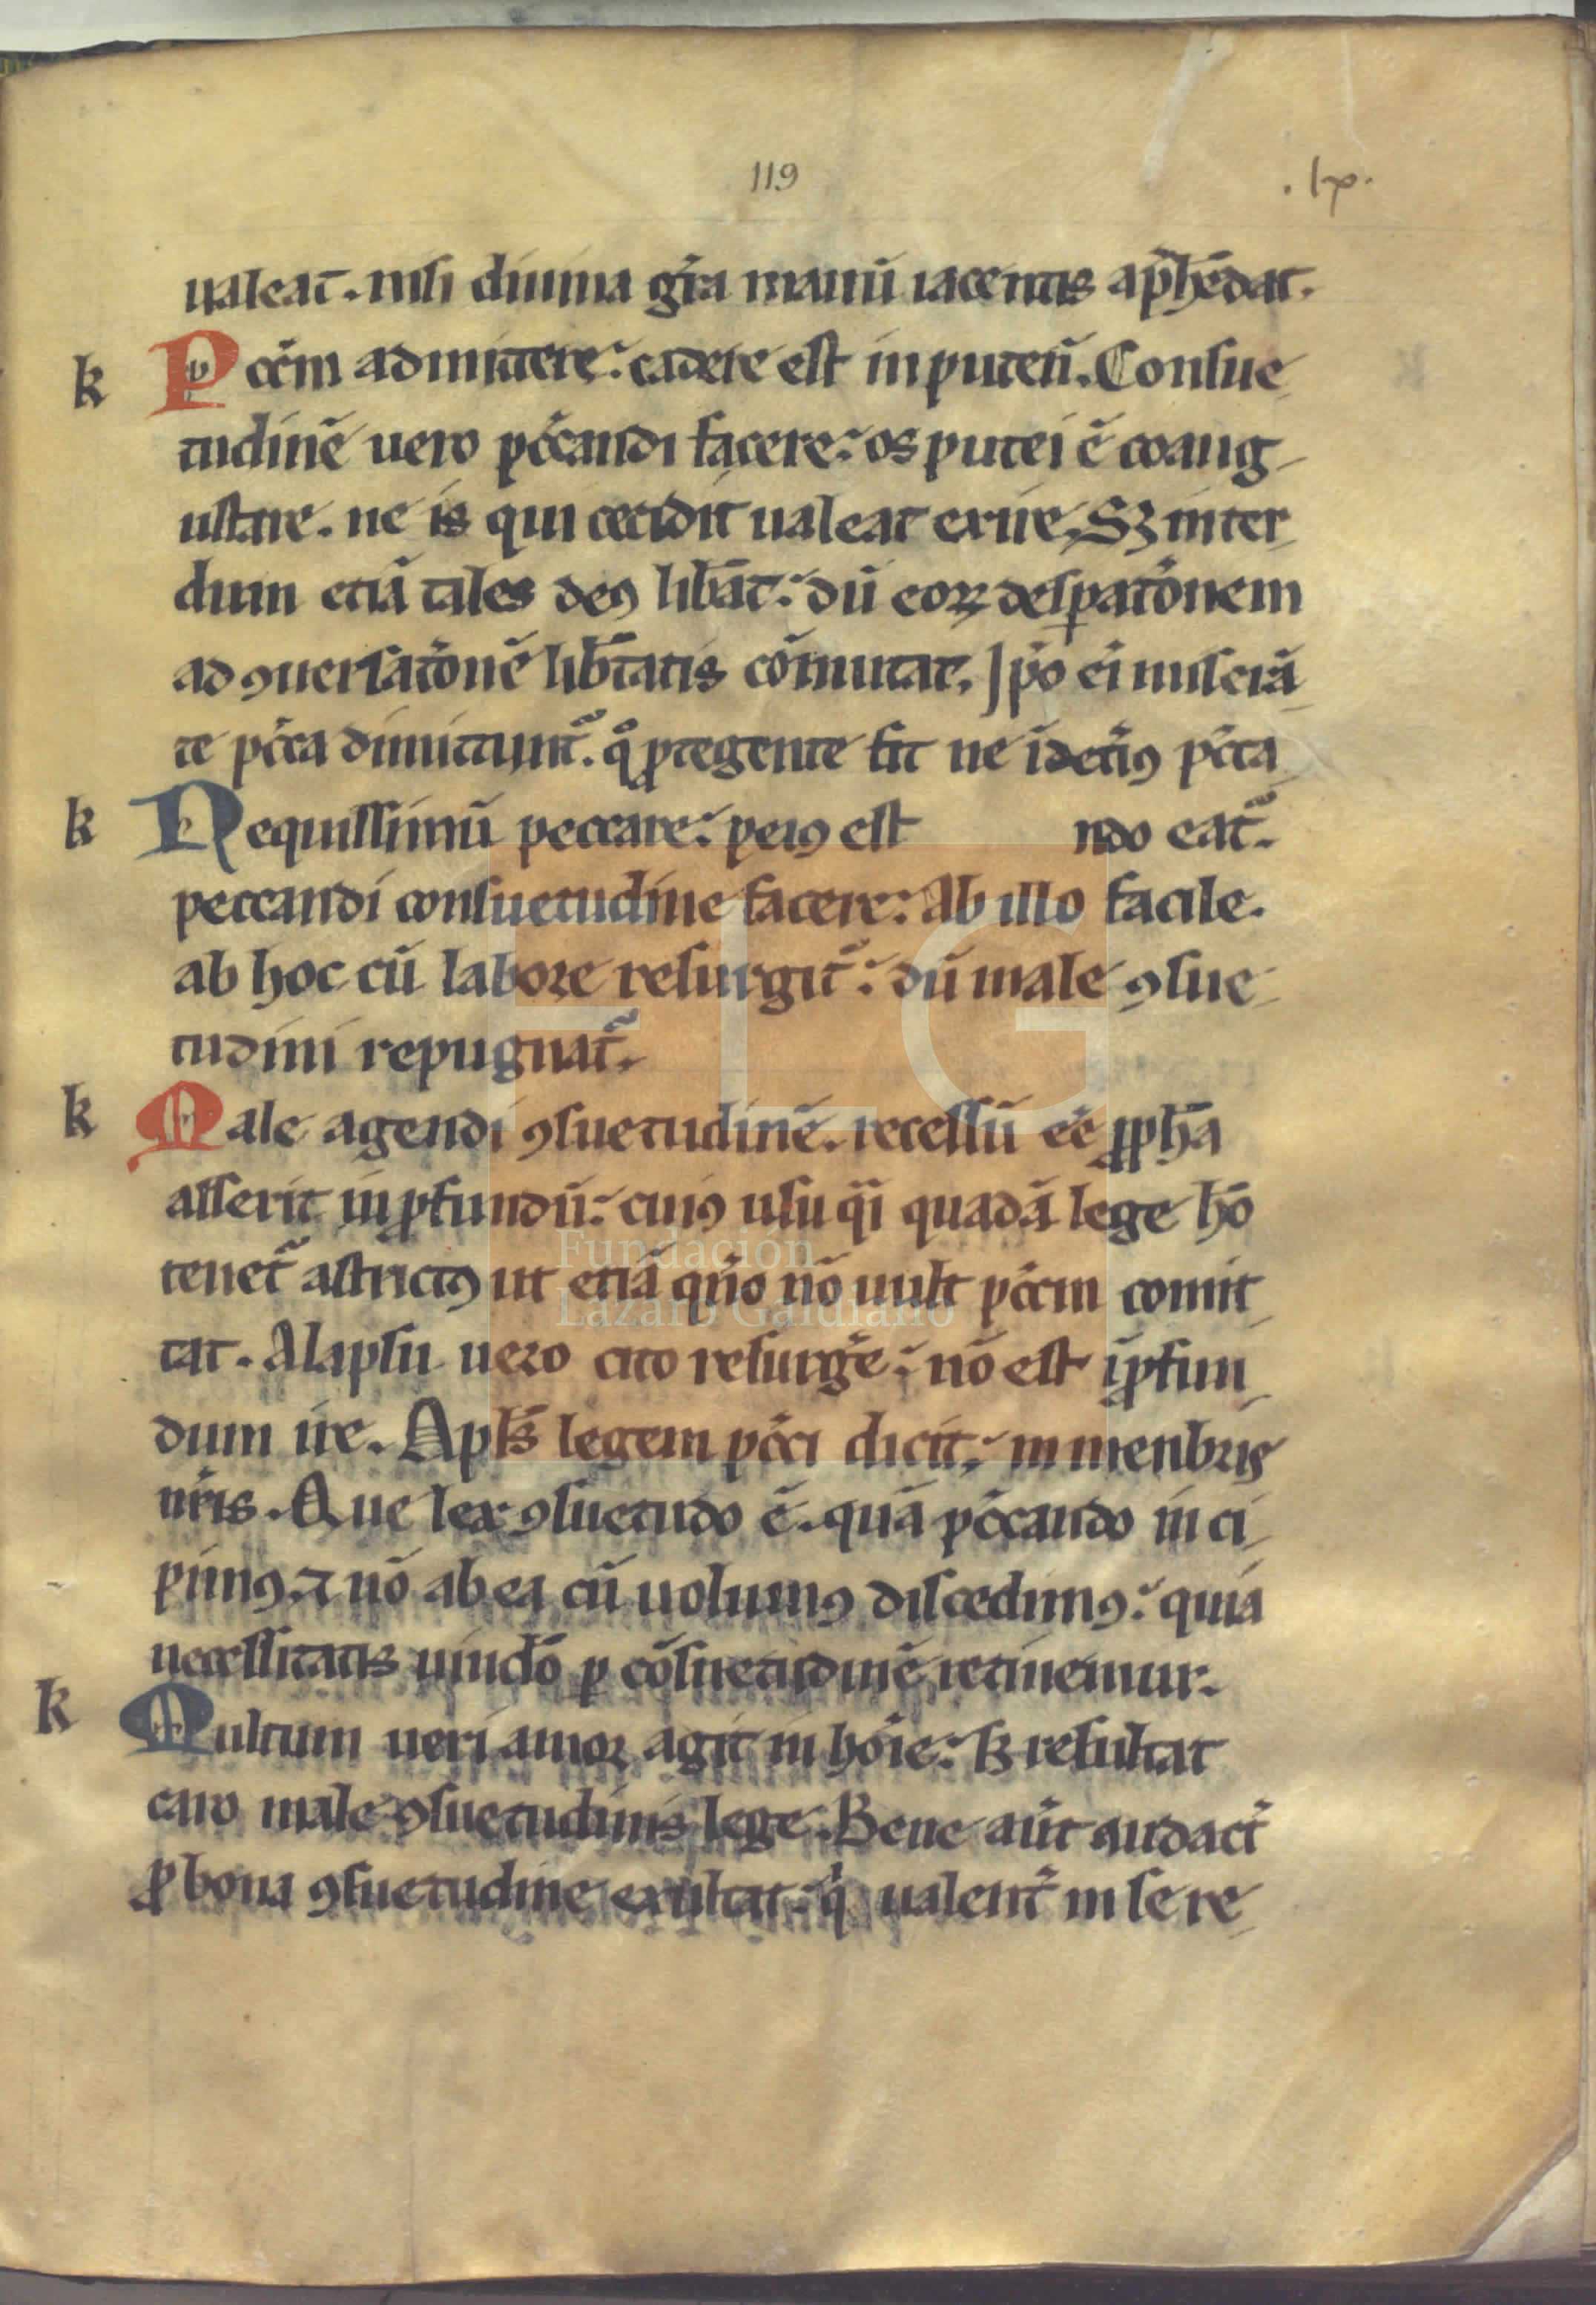 119
.lx.
ualeat. nisi diuina gr̃a manũ iacentis ap̃hẽdat.
k Pcc̃m admittere: cadere est in puteũ. Consue
tudinẽ uero pc̃candi facere: os putei ẽ coang
ustare. ne is qui cecidit ualeat exire. Sꝫ inter
dum etiã tales deꝯ lib̃at: dũ eoꝝ desꝑatõnem
ad ꝯuersatõnẽ lib̃tatis cõmutat. Ip̃o ei miserã
te pc̃ca dimittunt᷑. qͦ ꝓtegente fit ne ĩdet̃iꝯ pc̃ca
k Nequissimũ peccare: peiꝯ est ndo eat᷑.
peccandi consuetudine facere: Ab illo facile.
ab hoc cũ labore resurgit᷑: dũ male ꝯsue
tudini repugnat᷑.
k Male agendi ꝯsuetudinẽ. recessũ eẽ ꝓph̃a
asserit in ꝓfundũ: cuiꝯ usu q̃i quadã lege hõ
tenet᷑ astrictꝯ ut etiã qño nõ uult pc̃cm comit
tat. A lapsu uero cito resurg̃e: nõ est ĩ ꝓfun
dum ire. Apl̃s legem pc̃ci dicit: in menbris
nr̃is. Que lex ꝯsuetudo ẽ. quã pc̃cando inci
pimꝯ. ⁊ nõ ab ea cũ uolumꝯ discedimꝯ: quia
necessitatis uinclõ ꝑ cõsuetudinẽ retinemur.
k Multum ueri amor agit in hõie: sꝫ resultat
caro male ꝯsuetudinis lege. Bene aũt audact᷑
ꝓ bona ꝯsuetudine exultat: qͥ ualent᷑ in se re
FLG
Fundación
Lázaro Galdiano